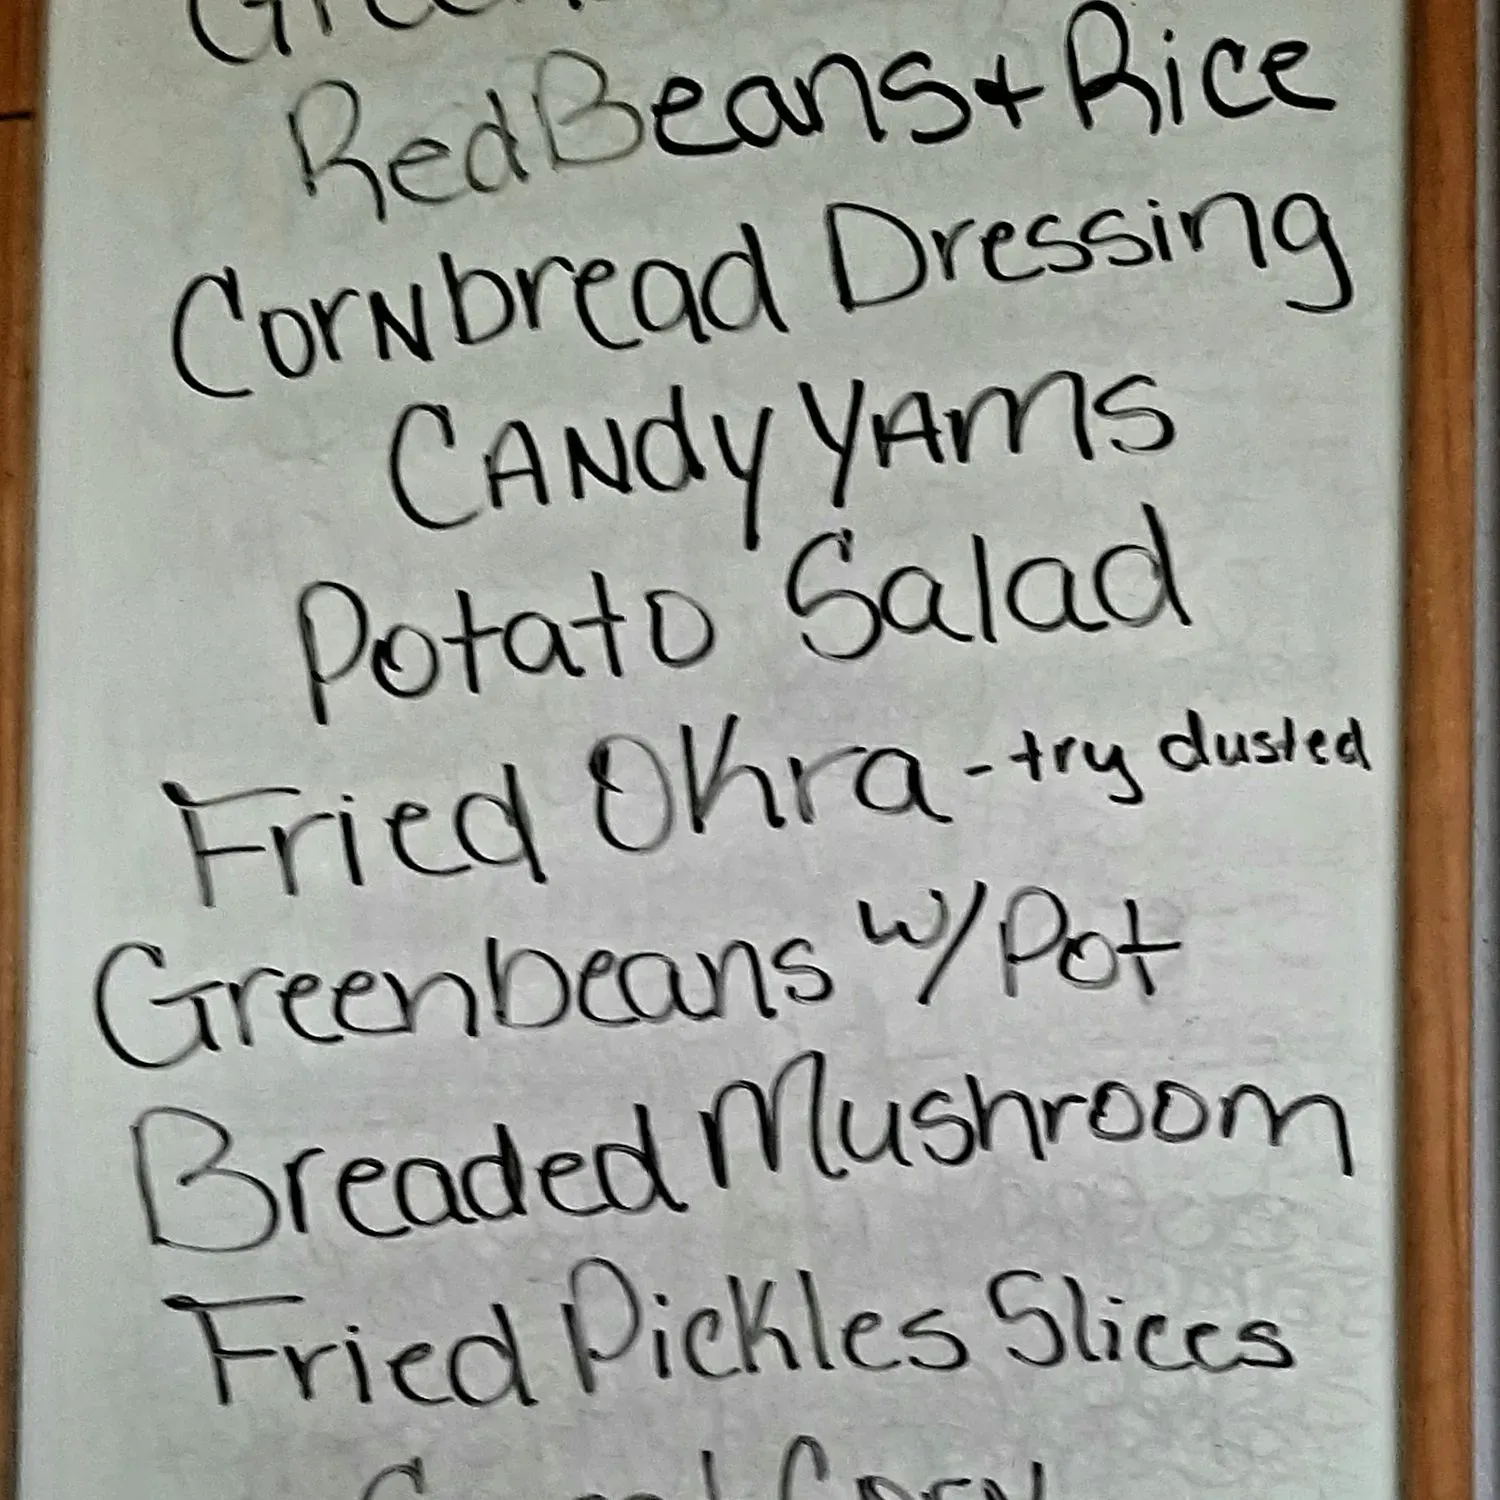 Red Beans + Rice
Cornbread Dressing
CANdy YAms
Potato Salad
Fried Okra - try dusted
Greenbeans w/ Pot
Breaded Mushroom
Fried Pickles Slices